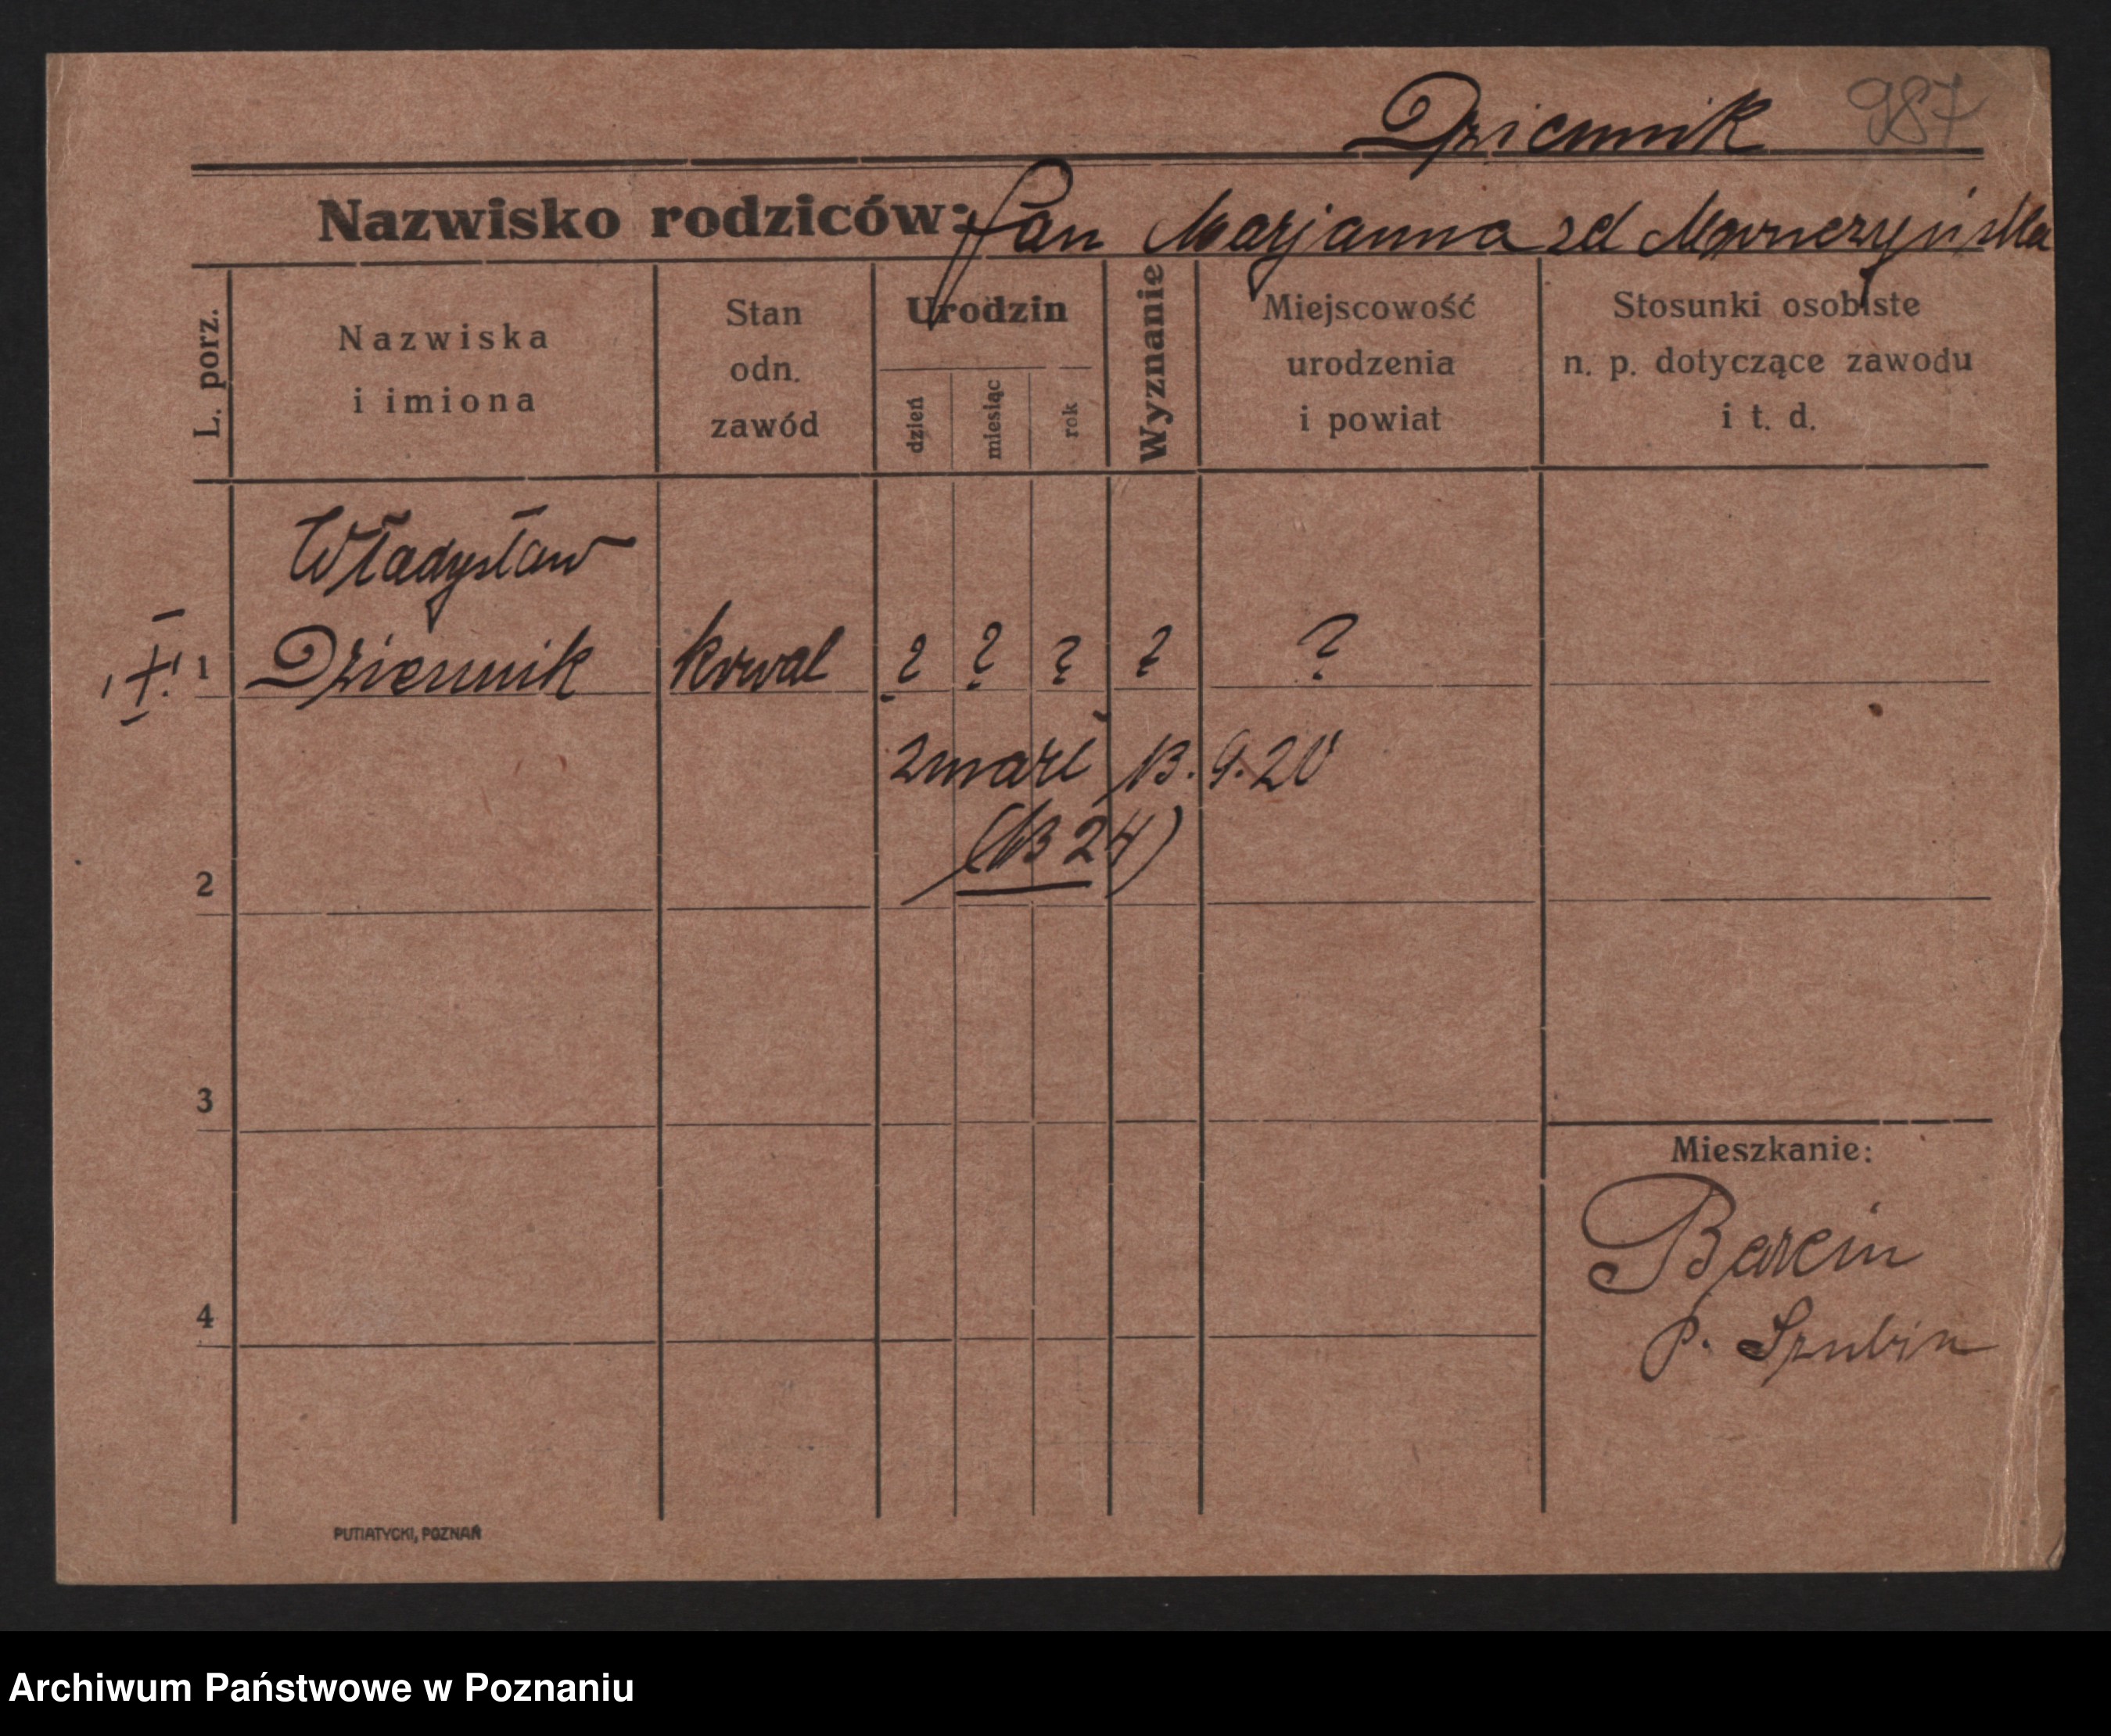 Dziennik 987
Nazwisko rodziców: Jan Marjanna zd
L. porz.
Nazwiska
i imiona
Stan
odn.
zawód
Urodzin
dzień
miesiąc
rok
Wyznanie
Miejscowość
urodzenia
i powiat
Stosunki osobiste
n. p. dotyczące zawodu
i t. d.
Władysław
1 Dziennik kowal ? ? ? ? ?
zmarł 13.9.20
(13 24)
2
3
Mieszkanie:
Barcin
p. Szubin
4
PUTIATYCKI, POZNAŃ
Archiwum Państwowe w Poznaniu